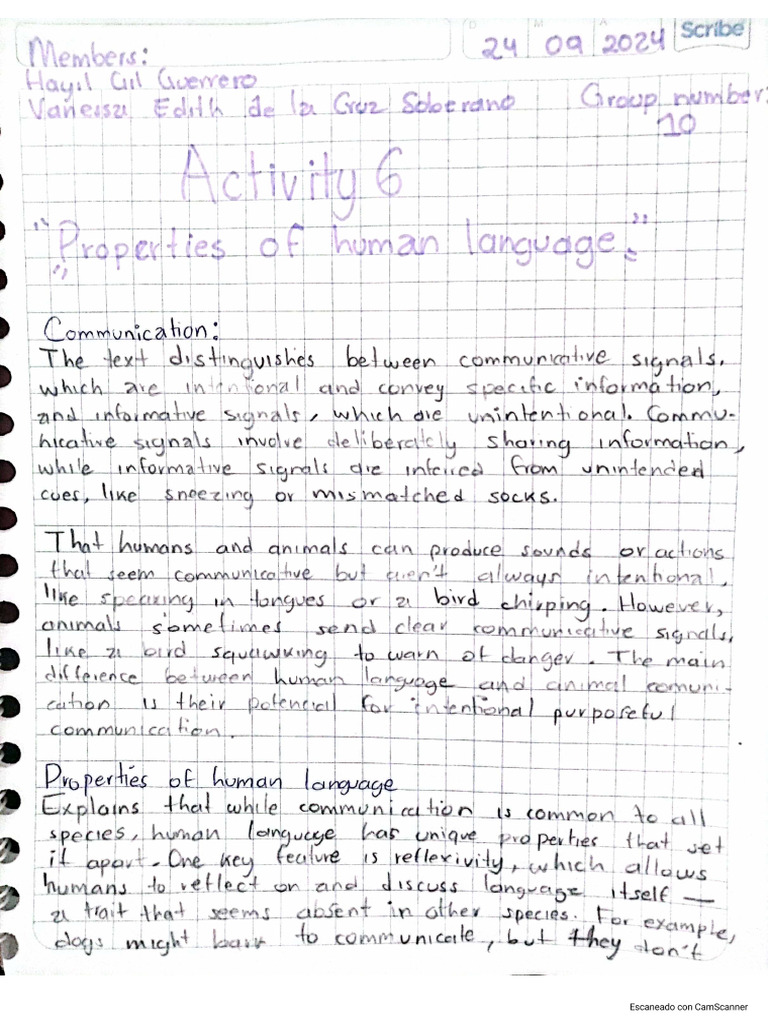 D M A Scribe
Members: 24 09 2024
Hayil Gil Guerrero
Vanessa Edith de la Cruz Soberano Group number:
10
Activity 6
"Properties of human language."
Communication:
The text distinguishes between communicative signals,
which are intentional and convey specific information,
and informative signals, which are unintentional. Commu-
nicative signals involve deliberately sharing information,
while informative signals are inferred from unintended
cues, like sneezing or mismatched socks.
That humans and animals can produce sounds or actions
that seem communicative but aren't always intentional,
like speaking in tongues or a bird chirping. However,
animals sometimes send clear communicative signals,
like a bird squawking to warn of danger. The main
difference between human language and animal comuni-
cation is their potencial for intentional purposeful
communication.
Properties of human language
Explains that while communication is common to all
species, human language has unique properties that set
it apart. One key feature is reflexivity, which allows
humans to reflect on and discuss language itself —
a trait that seems absent in other species. For example,
dogs might bark to communicate, but they don't
Escaneado con CamScanner